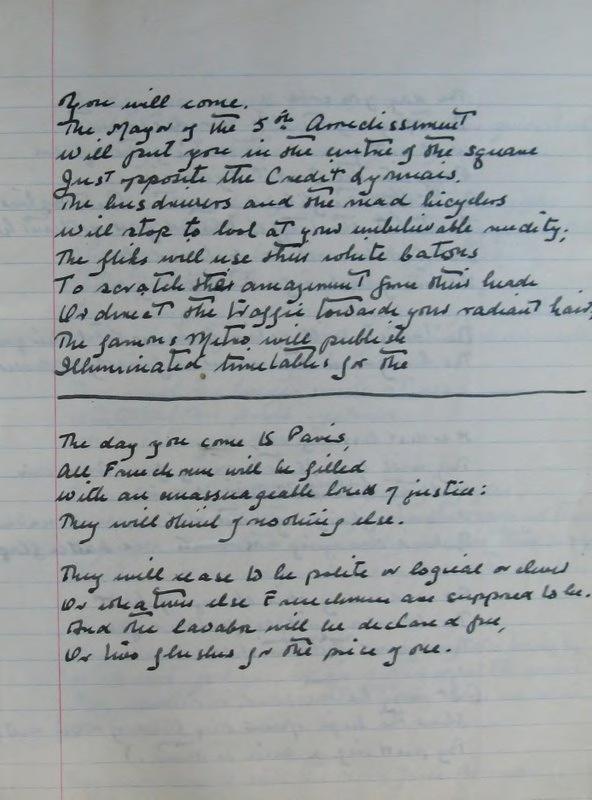 You will come.
The Mayor of the 5th Arrondissement
Will put you in the centre of the square
Just opposite the Credit Lyonnais.
The busdrivers and the mad bicyclers
Will stop to look at your unbelievable nudity;
The fliks will use their white batons
To scratch their amazement from their heads
Or direct the traffic towards your radiant hair,
The famous Metro, will publish
Illuminated, timetables for the
The day you come to Paris,
All Frenchmen will be filled
With an unassuageable of justice:
They will think of nothing else.
They will cease to be polite or logical or clever
Or whatever else Frenchmen are supposed to be.
And the lavabos will be declared free,
Or two flushes for the price of one.